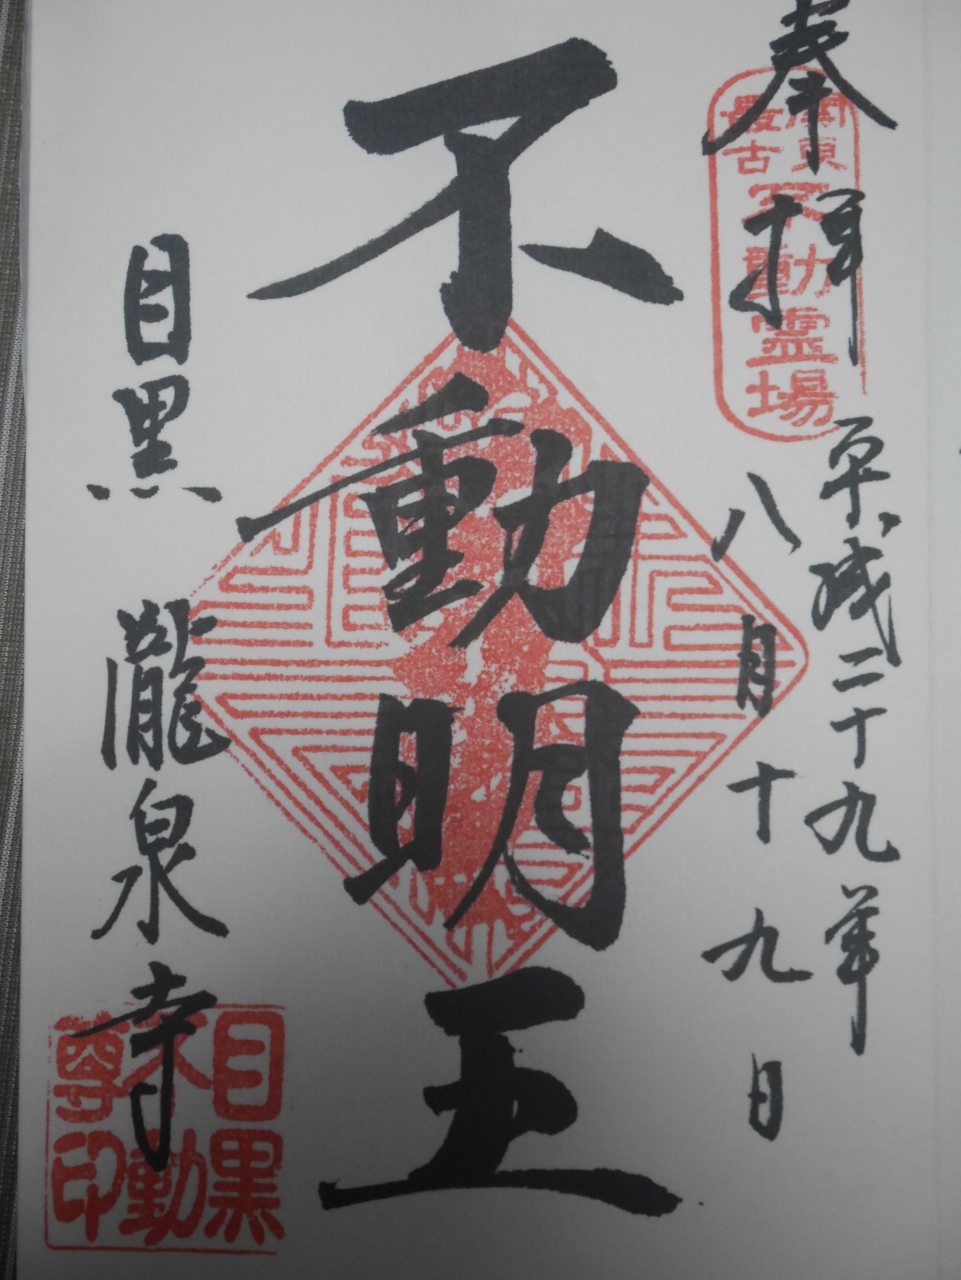 奉拝
関東
最古
不動霊場
平成二十九年
八月十九日
不動明王
目黒 瀧泉寺
目黒
不動
尊印